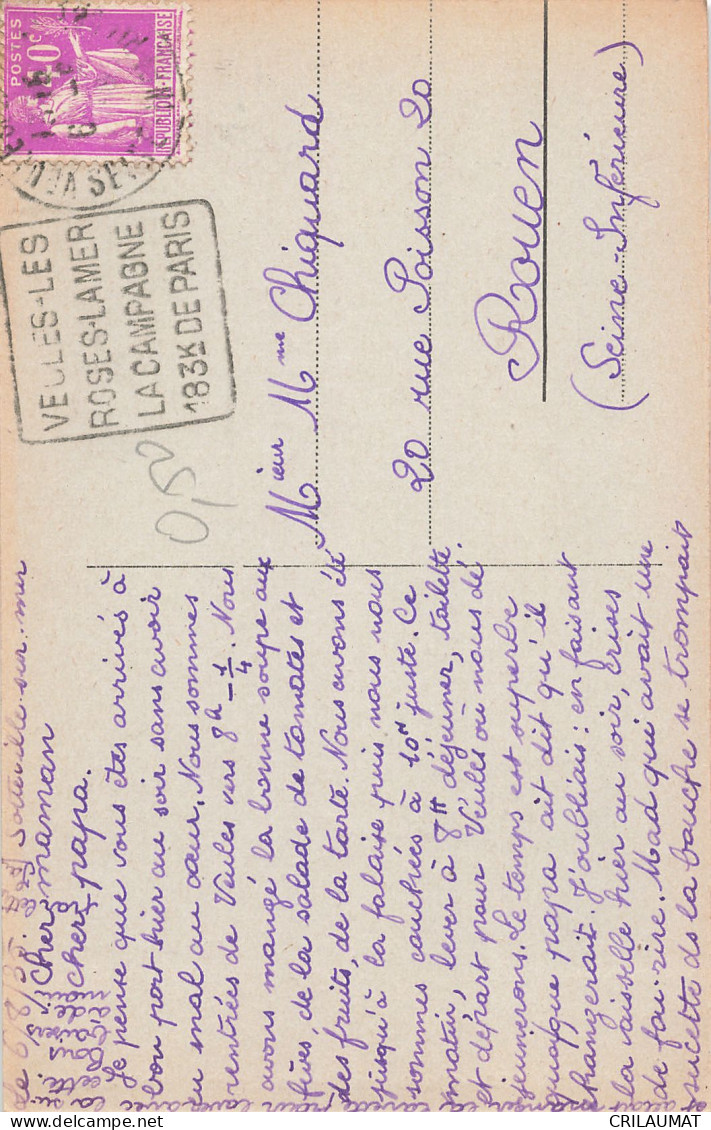 Le 9/8/35. Sotteville-sur-mer
Chère maman
cher papa.
Je pense que vous êtes arrivés à
bon port hier au soir sans avoir
eu mal au cœur. Nous sommes
rentrées de Veules vers 8h - 1/4. Nous
avons mangé la bonne soupe aux
fèves, de la salade de tomates et
des fruits, de la tarte. Nous avons été
jusqu'à la falaise puis nous nous
sommes couchées à 10h juste. Ce
matin, lever à 8H déjeuner, toilette.
et départ pour Veules où nous dé
jeunerons. Le temps est superbe
quoique papa ait dit qu'il
changerait. J'oubliais : en faisant
la vaisselle hier au soir, crises
de fou-rire. Mad qui avait une
sucette ds la bouche se trompait
POSTES
20c
REPUBLIQUE FRANÇAISE
VEULES-LES
ROSES-LAMER
LA CAMPAGNE
183K DE PARIS
0,50
Mieur Mme Chiquard
20 rue Poisson 20
Rouen
(Seine-Inférieure)
CRILAUMAT